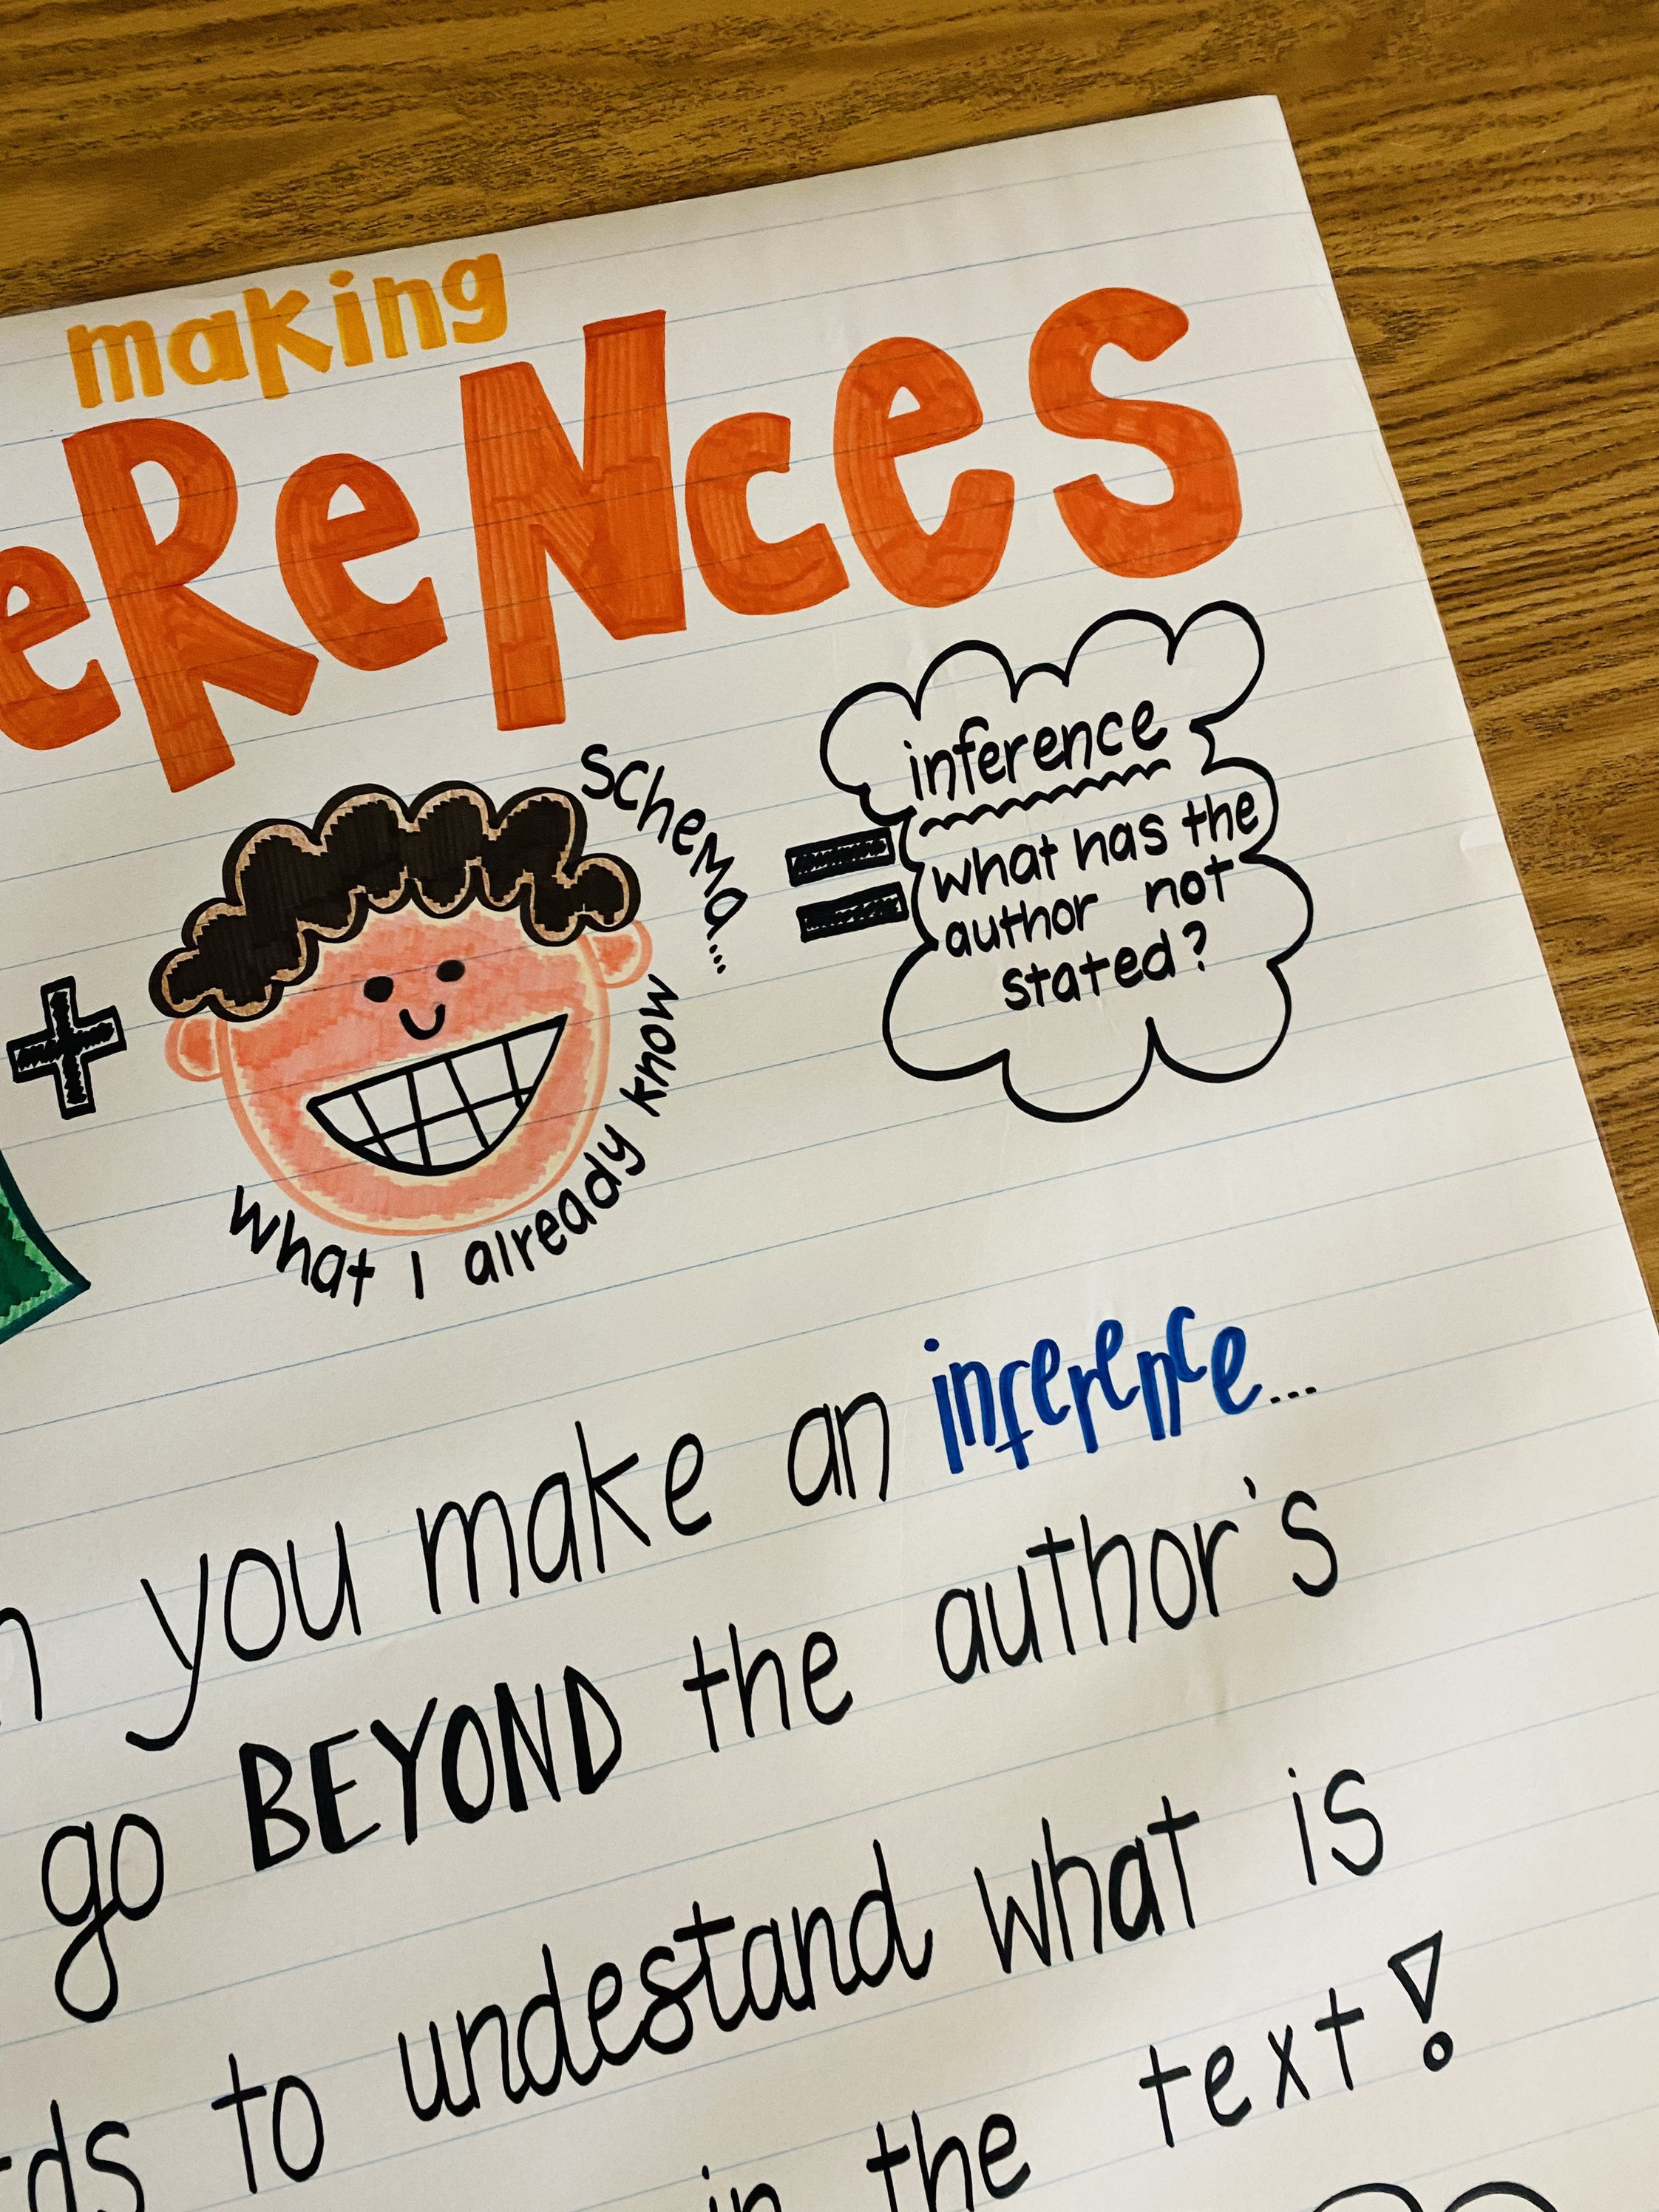 making
eReNces
schema...
what I already know
inference
what has the
author not
stated?
you make an inference...
go BEYOND the author's
to undestand what is
in the text!